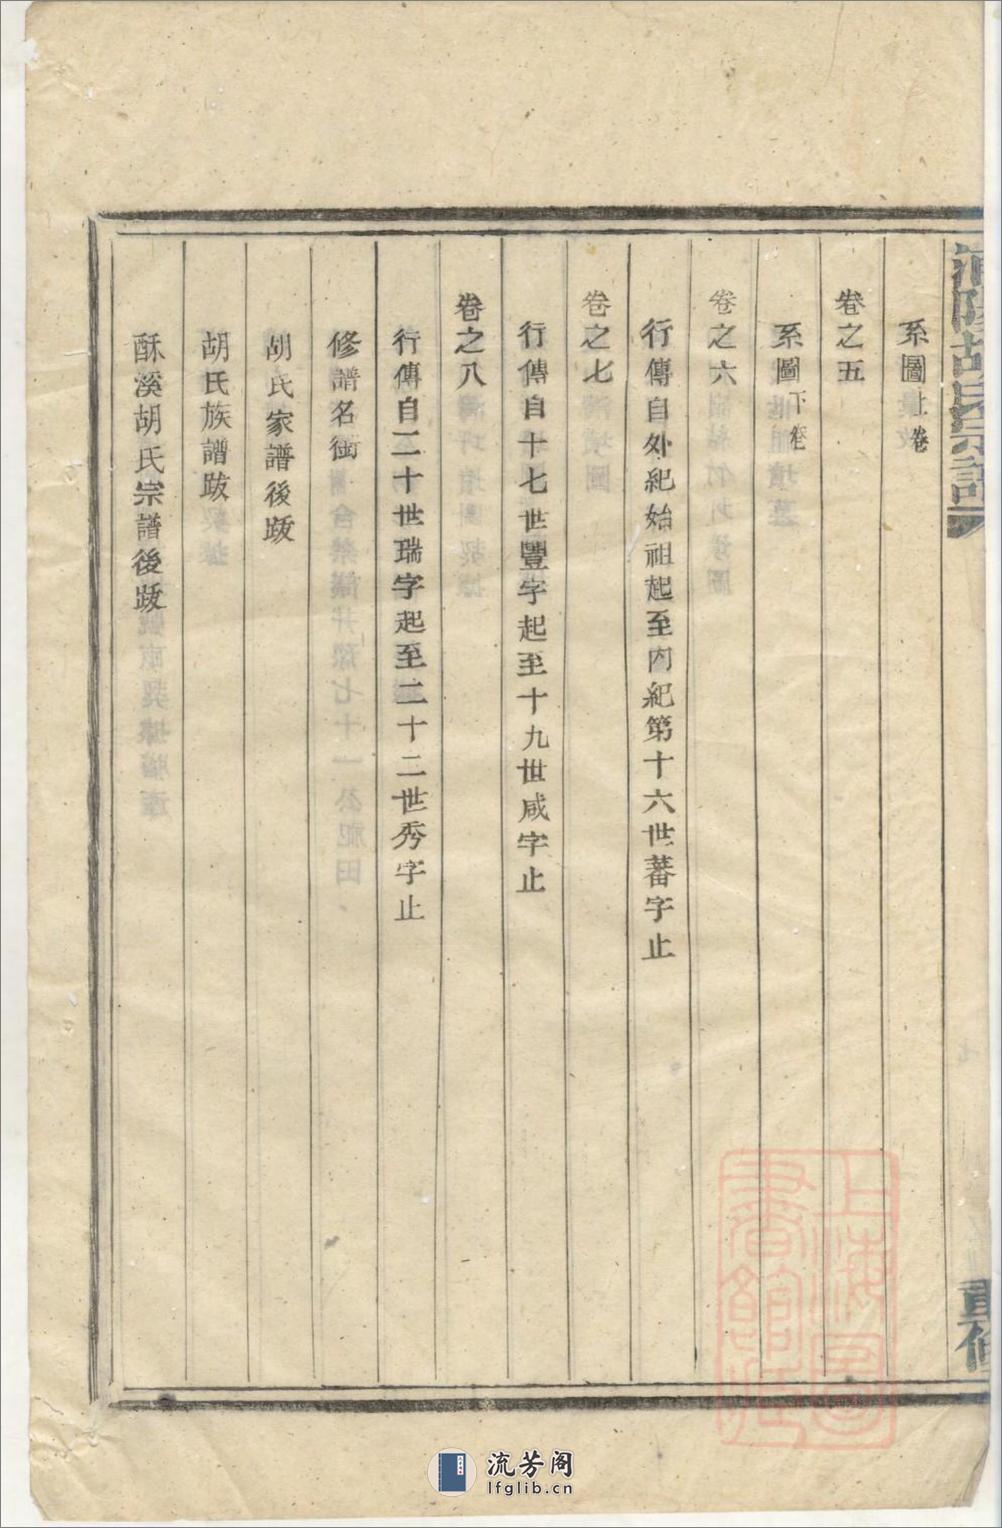 胡氏宗譜
重修
系圖上卷
卷之五
系圖下卷
卷之六
行傳自外紀始祖起至内紀第十六世蕃字止
卷之七
行傳自十七世豐字起至十九世咸字止
卷之八
行傳自二十世瑞字起至二十二世秀字止
修譜名銜
胡氏家譜後跋
胡氏族譜跋
酥溪胡氏宗譜後跋
上海圖
書館藏
流芳阁
lfglib.cn